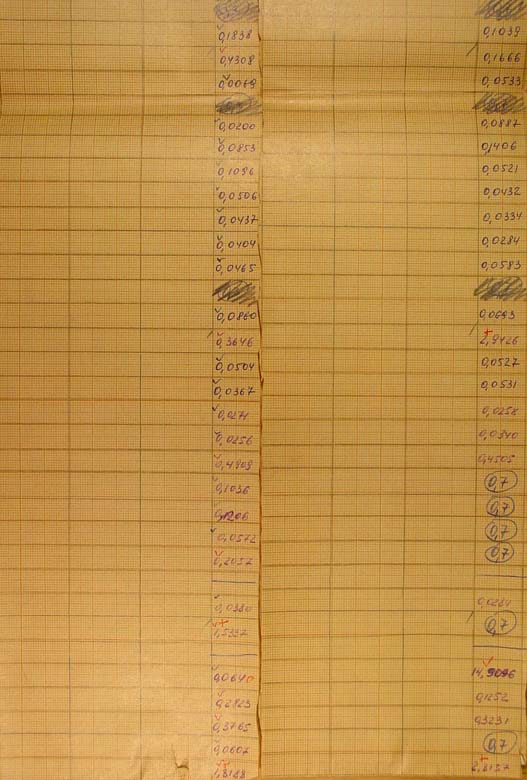 0,1838 0,1039
0,4308 0,1666
0,0069 0,0533
0,0200 0,0887
0,0853 0,1406
0,1096 0,0521
0,0506 0,0432
0,0437 0,0334
0,0404 0,0284
0,0465 0,0583
0,0860 0,0693
0,3646 2,9426
0,0504 0,0527
0,0367 0,0531
0,0271 0,0258
0,0256 0,0340
0,4908 0,4505
0,1036 0,7
0,7
0,0572 0,7
0,2057 0,7
0,0380 0,0284
1,5337 0,7
0,0640
0,2823 0,1252
0,3765 0,3231
0,0607 0,7
2,8157